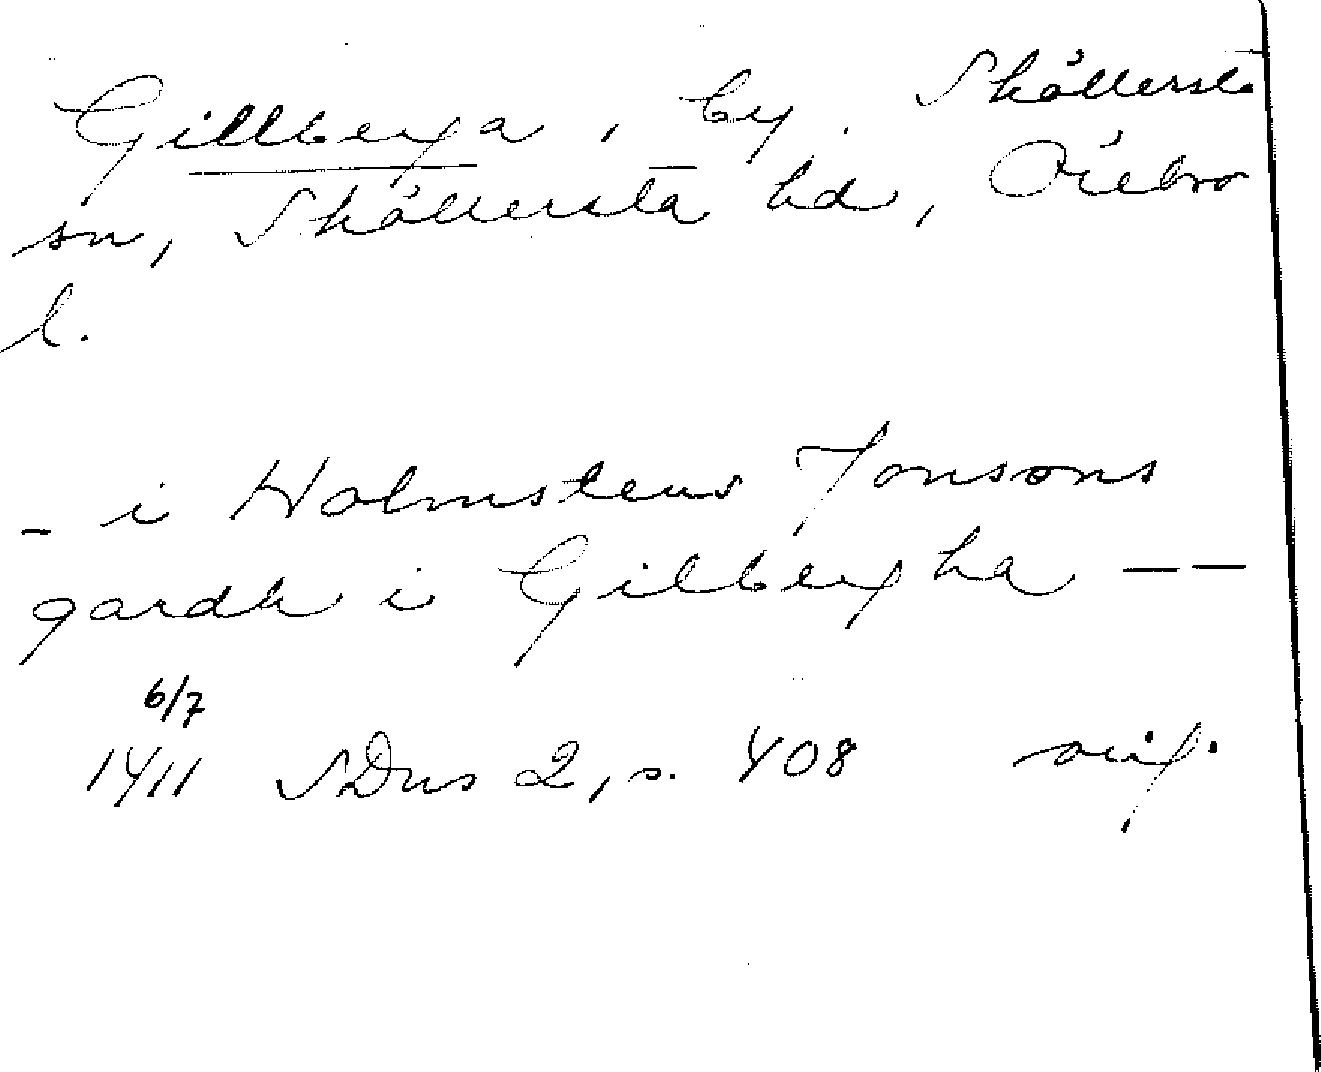 Gillberga, by, Sköllersta
sn, Sköllersta hd, Örebro
l.
– i Holmstens Jonsons
gardh i Gilbergha — —
6/7
1411 SDns 2, s. 408 orig.